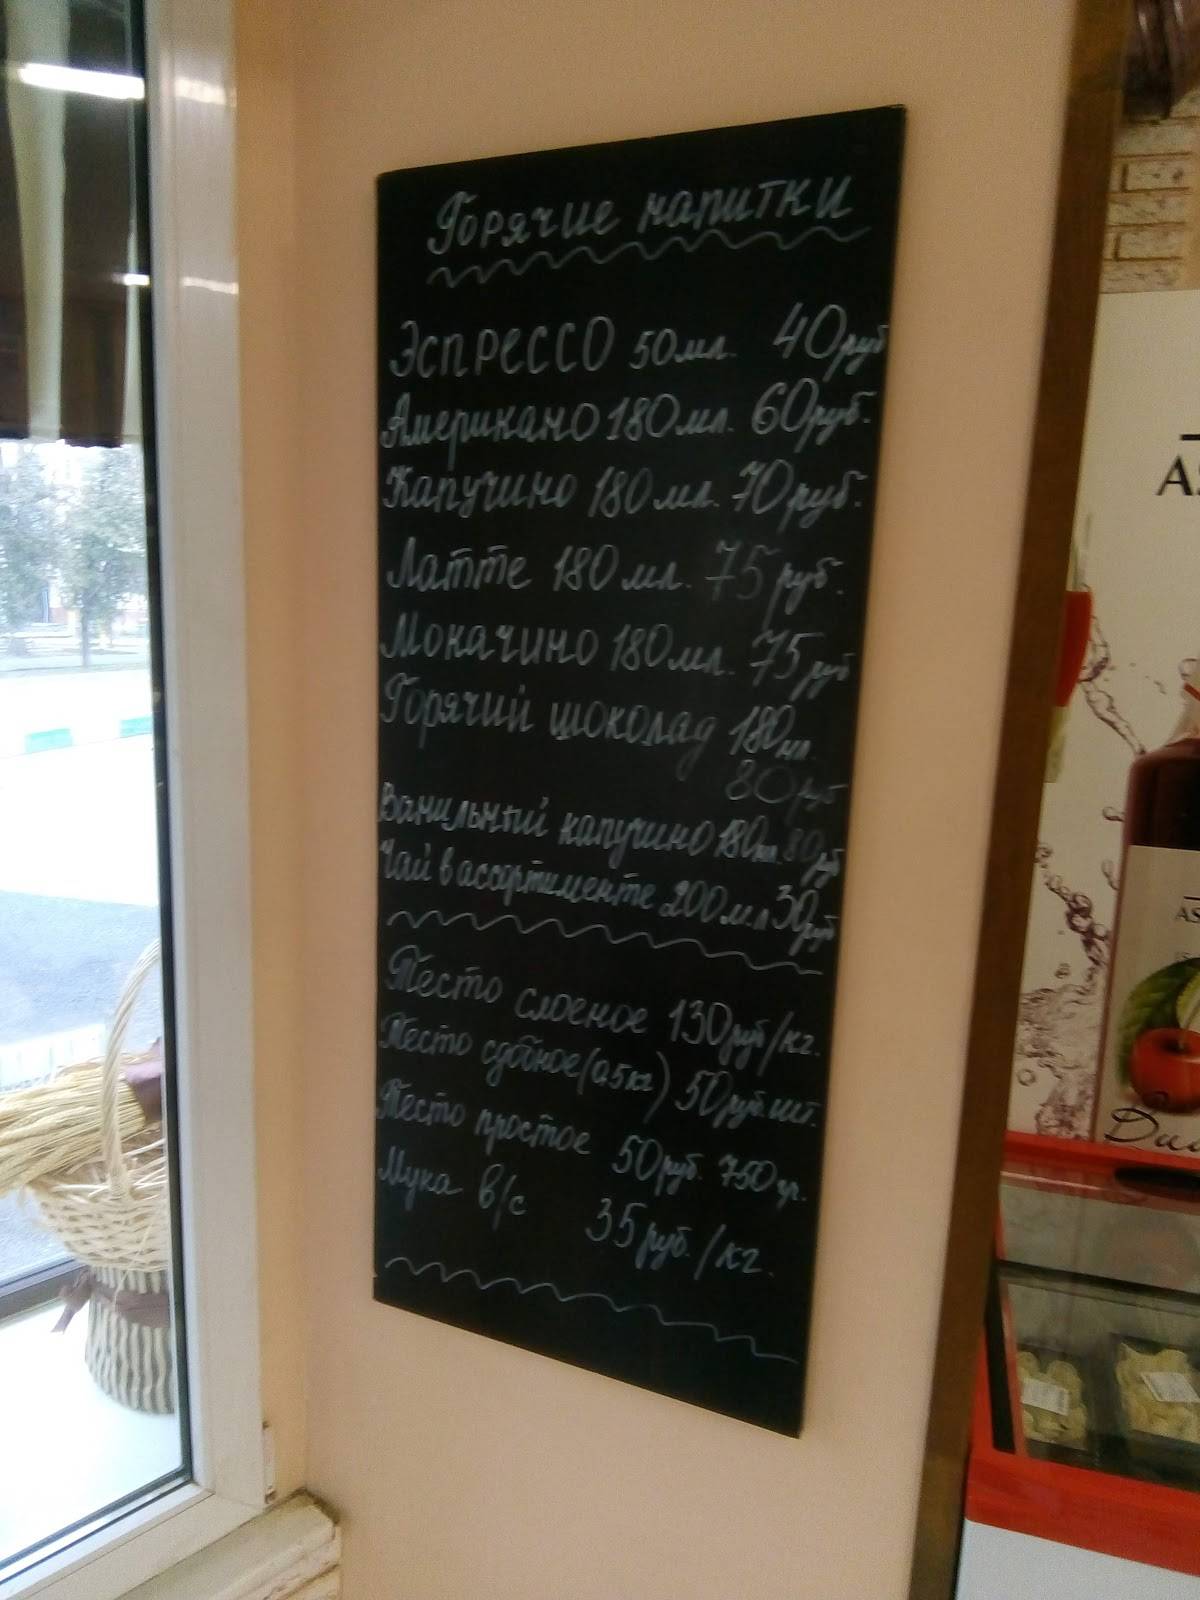 Горячие напитки
Эспрессо 50мл. 40руб
Американо 180мл. 60руб.
Капучино 180мл. 70руб.
Латте 180мл. 75руб.
Мокачино 180мл. 75руб
Горячий шоколад 180мл.
80руб
Ванильный капучино 180мл. 80руб
Чай в ассортименте 200мл 30руб
Тесто слоеное 130руб/кг.
Тесто сдобное(0,5кг) 50руб.шт.
Тесто простое 50руб. 750гр.
Мука в/с 35руб./кг.